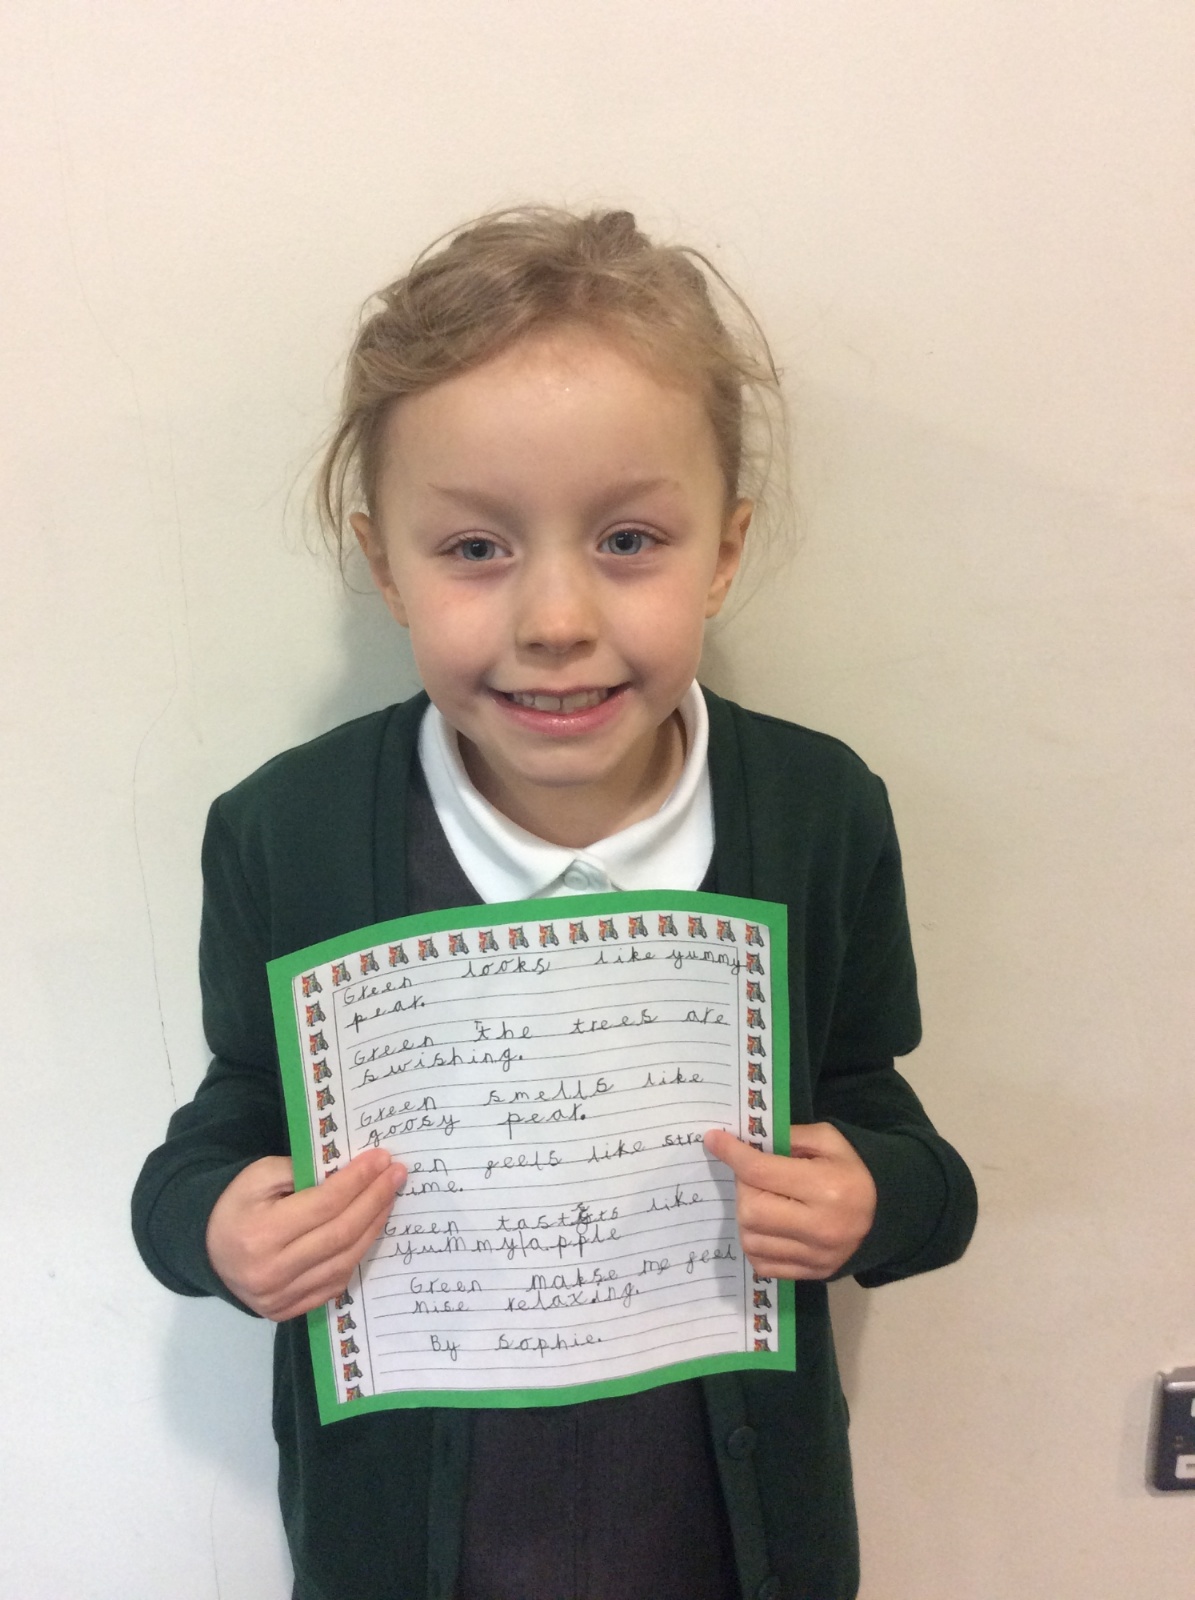 Green looks like yummy
pear.
Green the trees are
swishing.
Green smells like
goosy pear.
en feels like stre
lime.
Green tastests like
yummy apple
Green makse me feel
nise relaxing.
By Sophie.